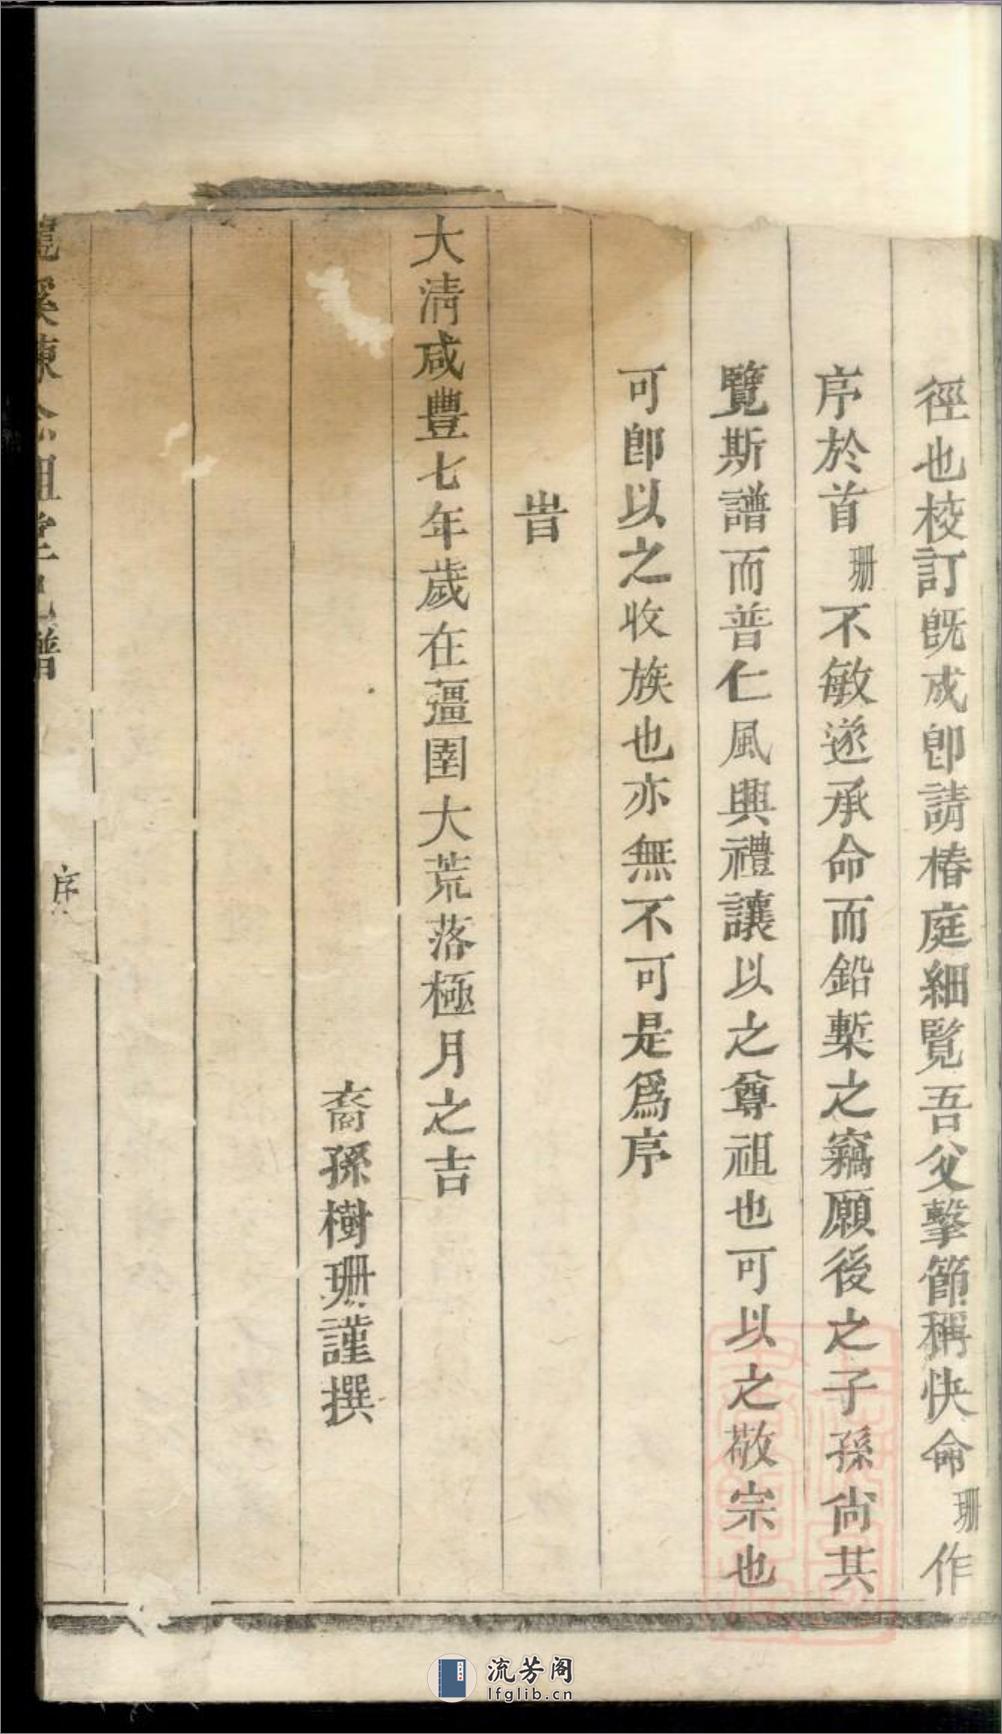 徑也校訂既成卽請椿庭細覽吾父擊節稱快命珊作
序於首珊不敏遂承命而鉛槧之竊願後之子孫尚其
覽斯譜而普仁風興禮讓以之尊祖也可以之敬宗也
可卽以之收族也亦無不可是爲序
旹
大清咸豐七年歲在彊圉大荒落極月之吉
裔孫樹珊謹撰
序
流芳阁
lfglib.cn